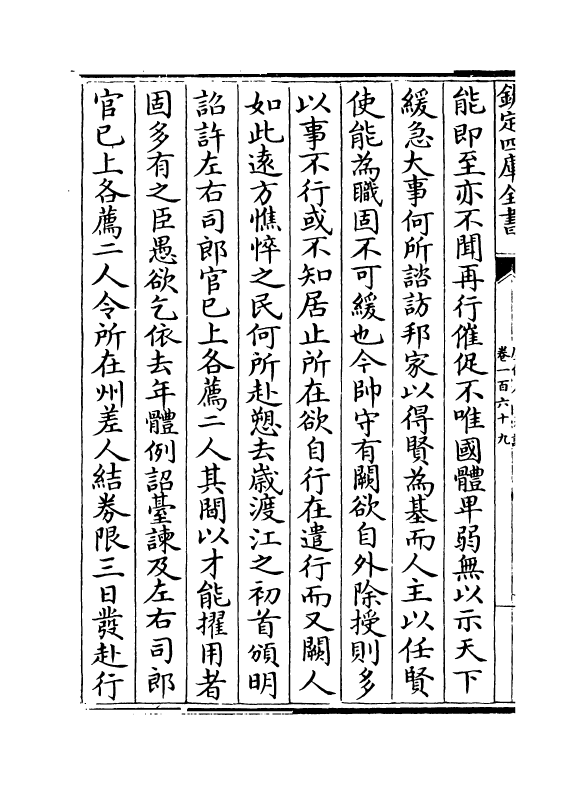 欽定四庫全書
卷一百六十九
能即至亦不聞再行催促不唯國體卑弱無以示天下
緩急大事何所諮訪邦家以得賢為基而人主以任賢
使能為職固不可緩也今帥守有闕欲自外除授則多
以事不行或不知居止所在欲自行在遣行而又闕人
如此逺方憔悴之民何所赴愬去歳渡江之初首頒明
詔許左右司郎官已上各薦二人其間以才能擢用者
固多有之臣愚欲乞依去年體例詔臺諫及左右司郎
官已上各薦二人令所在州差人結券限三日發赴行